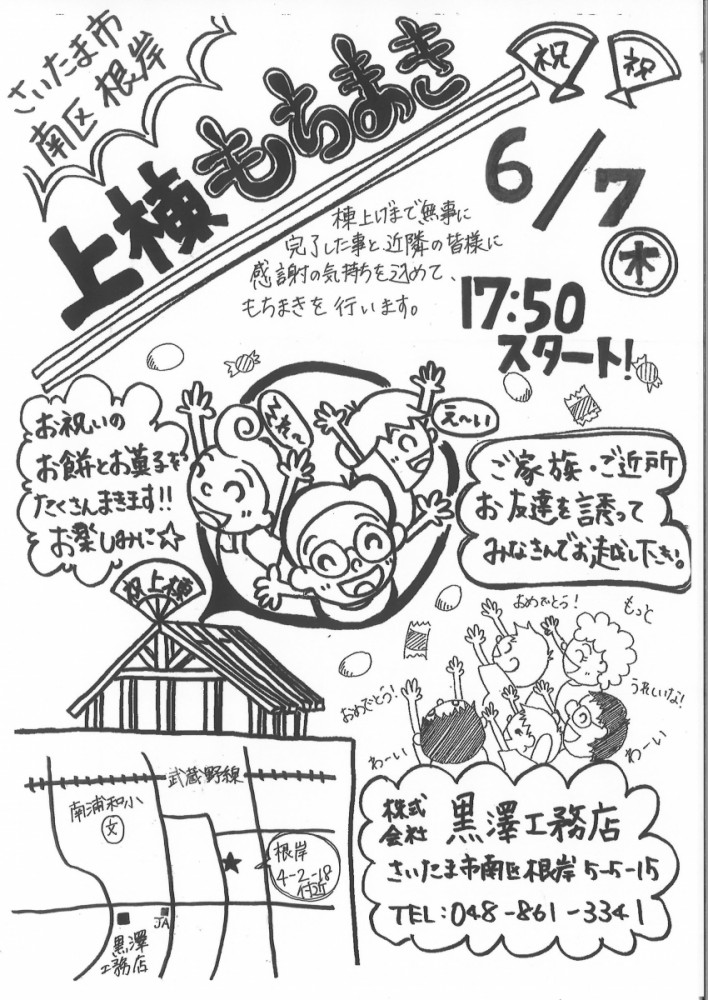 さいたま市
南区 根岸
祝
祝
上棟もちまき
6/7
木
棟上げまで無事に
完了した事と近隣の皆様に
感謝の気持ちを込めて、
もちまきを行います。
17:50
スタート!
お祝いの
お餅とお菓子を
たくさんまきます!!
お楽しみに☆
それ〜
え〜い
ご家族・ご近所
お友達を誘って
みなさんでお越し下さい。
祝上棟
おめでとう!
もっと
うれしいな!
おめでとう!
わーい
わーい
武蔵野線
南浦和小
文
★
根岸
4-2-18
付近
JA
黒澤
工務店
株式
会社 黒澤工務店
さいたま市南区根岸5-5-15
TEL:048-861-3341